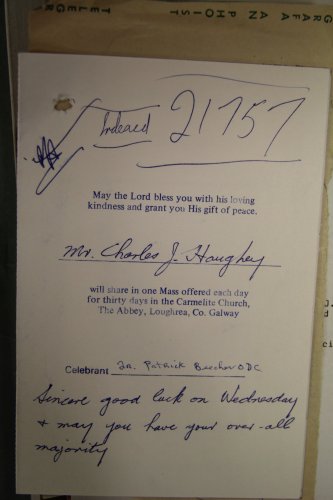 GRAFA AN PHOIST
TELEGR
Indexed 21757
May the Lord bless you with his loving
kindness and grant you His gift of peace.
Mr. Charles J. Haughey
will share in one Mass offered each day
for thirty days in the Carmelite Church,
The Abbey, Loughrea, Co. Galway
Celebrant Fr. Patrick Beecher ODC
Sincere good luck on Wednesday
& may you have your over-all
majority